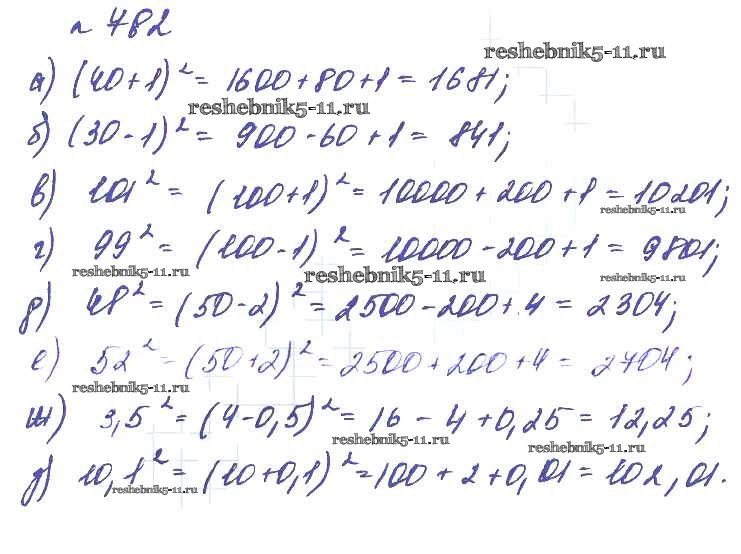 № 482
reshebnik5-11.ru
а) (40+1)² = 1600+80+1 = 1681;
reshebnik5-11.ru
б) (30-1)² = 900-60+1 = 841;
в) 101² = (100+1)² = 10000+200+1 = 10201;
reshebnik5-11.ru
г) 99² = (100-1)² = 10000-200+1 = 9801;
reshebnik5-11.ru reshebnik5-11.ru reshebnik5-11.ru
д) 48² = (50-2)² = 2500-200+4 = 2304;
е) 52² = (50+2)² = 2500+200+4 = 2704;
reshebnik5-11.ru
ж) 3,5² = (4-0,5)² = 16-4+0,25 = 12,25;
reshebnik5-11.ru reshebnik5-11.ru
д) 10,1² = (10+0,1)² = 100+2+0,01 = 102,01.
reshebnik5-11.ru